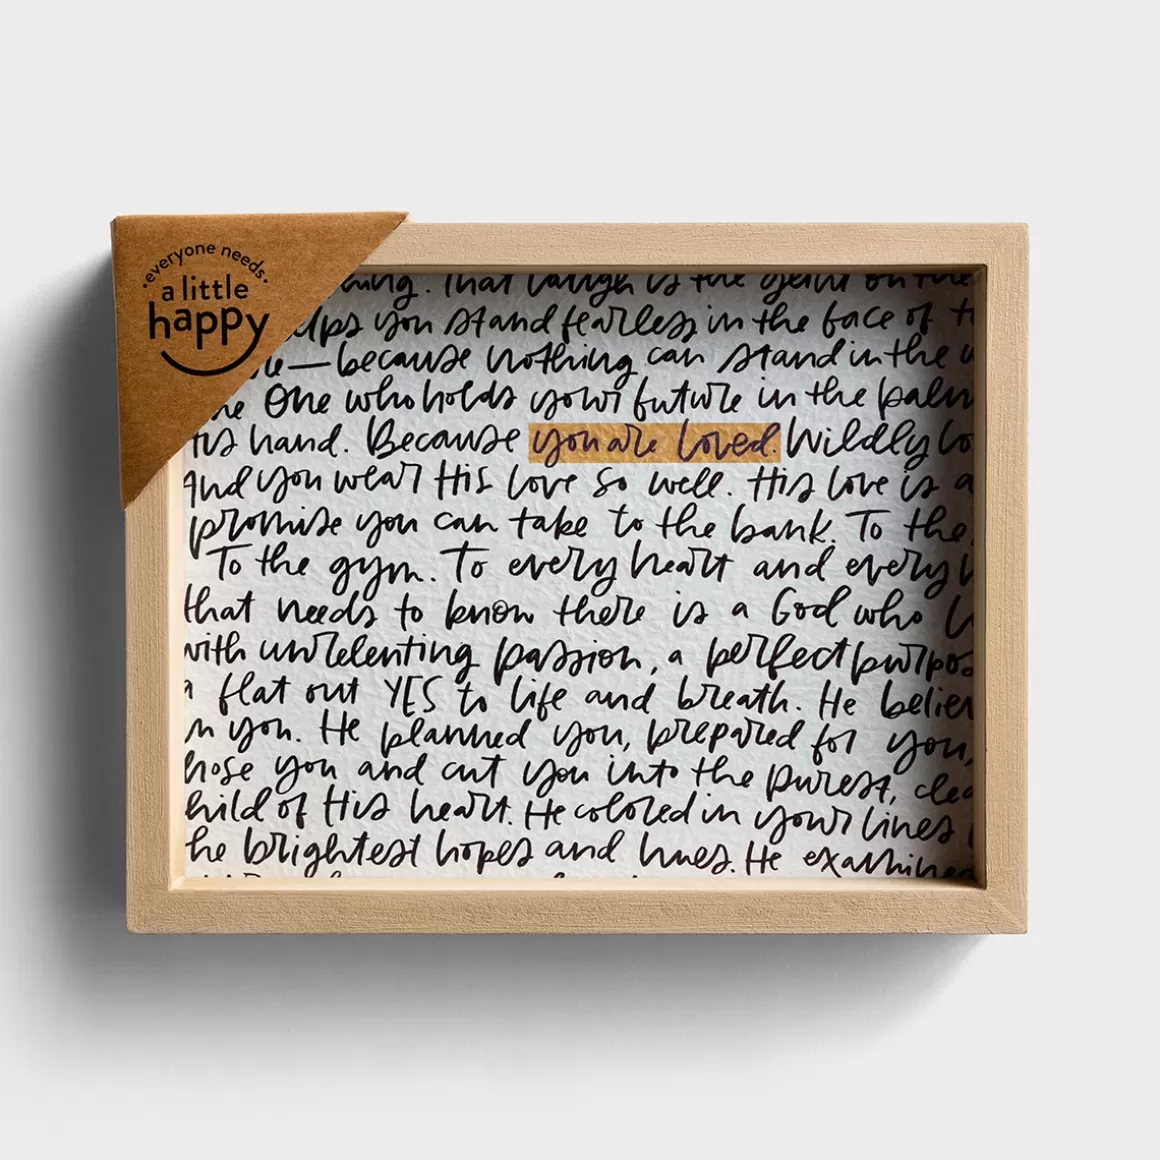 everyone needs
a little
happy
. That laugh is the
you stand fearless in the face of
—because nothing can stand in the
One who holds your future in the palm
hand. Because you are loved. Wildly
And you wear His love so well. His love is a
promise you can take to the bank. To the
To the gym. To every heart and every
that needs to know there is a God who
with unrelenting passion, a perfect
a flat out YES to life and breath. He
in you. He planned you, prepared for you,
you and cut you into the purest,
of His heart. He colored in your lines
brightest hopes and hues. He